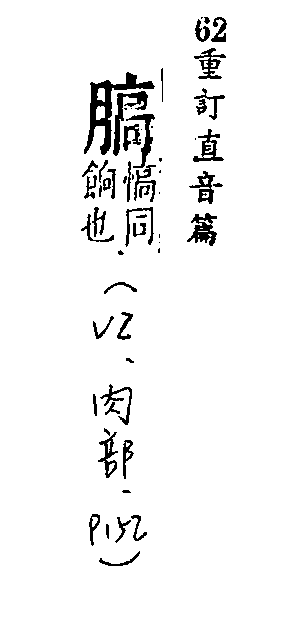 62重訂直音篇
䐧犒同餉也.(V2、肉部、P152)